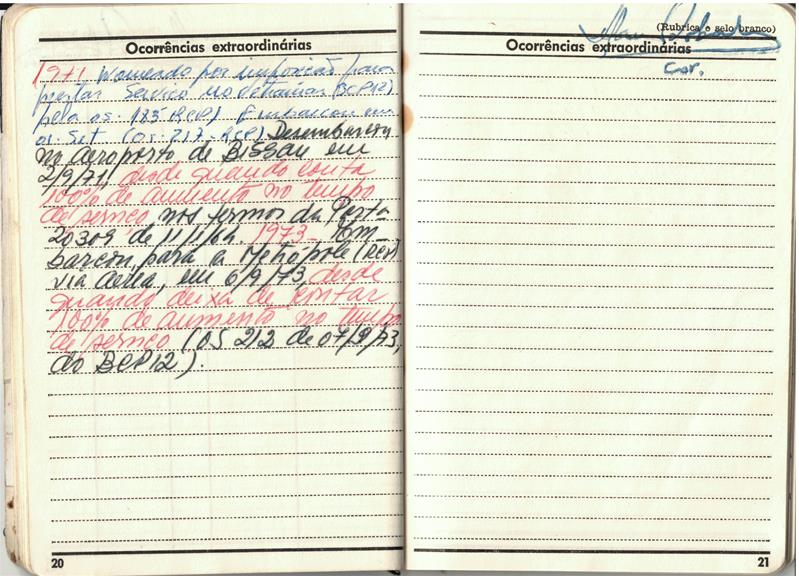 Ocorrências extraordinárias
1971 Nomeado por imposição para
prestar serviço no (BCP12)
pela os. 183 RCP) Embarcou em
01. Set (Os. 217-RCP) Desembarcou
no aeroporto de BISSAU em
2/9/71, desde quando conta
100% de aumento no tempo
de serviço, nos termos da Porta
20309 de 11/1/64. 1973 Em
barcou para a Metrópole (RCP)
via aérea, em 6/9/73, desde
quando deixa de contar
100% de aumento no tempo
de serviço (OS 212 de 07/9/73,
do BCP12).
20
(Rubrica e selo branco)
Ocorrências extraordinárias
Cor.
21